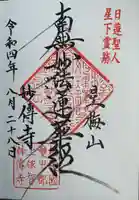 日蓮聖人
星下霊跡
星梅山
南無妙法蓮華経
妙傳寺
令和四年八月二十八日